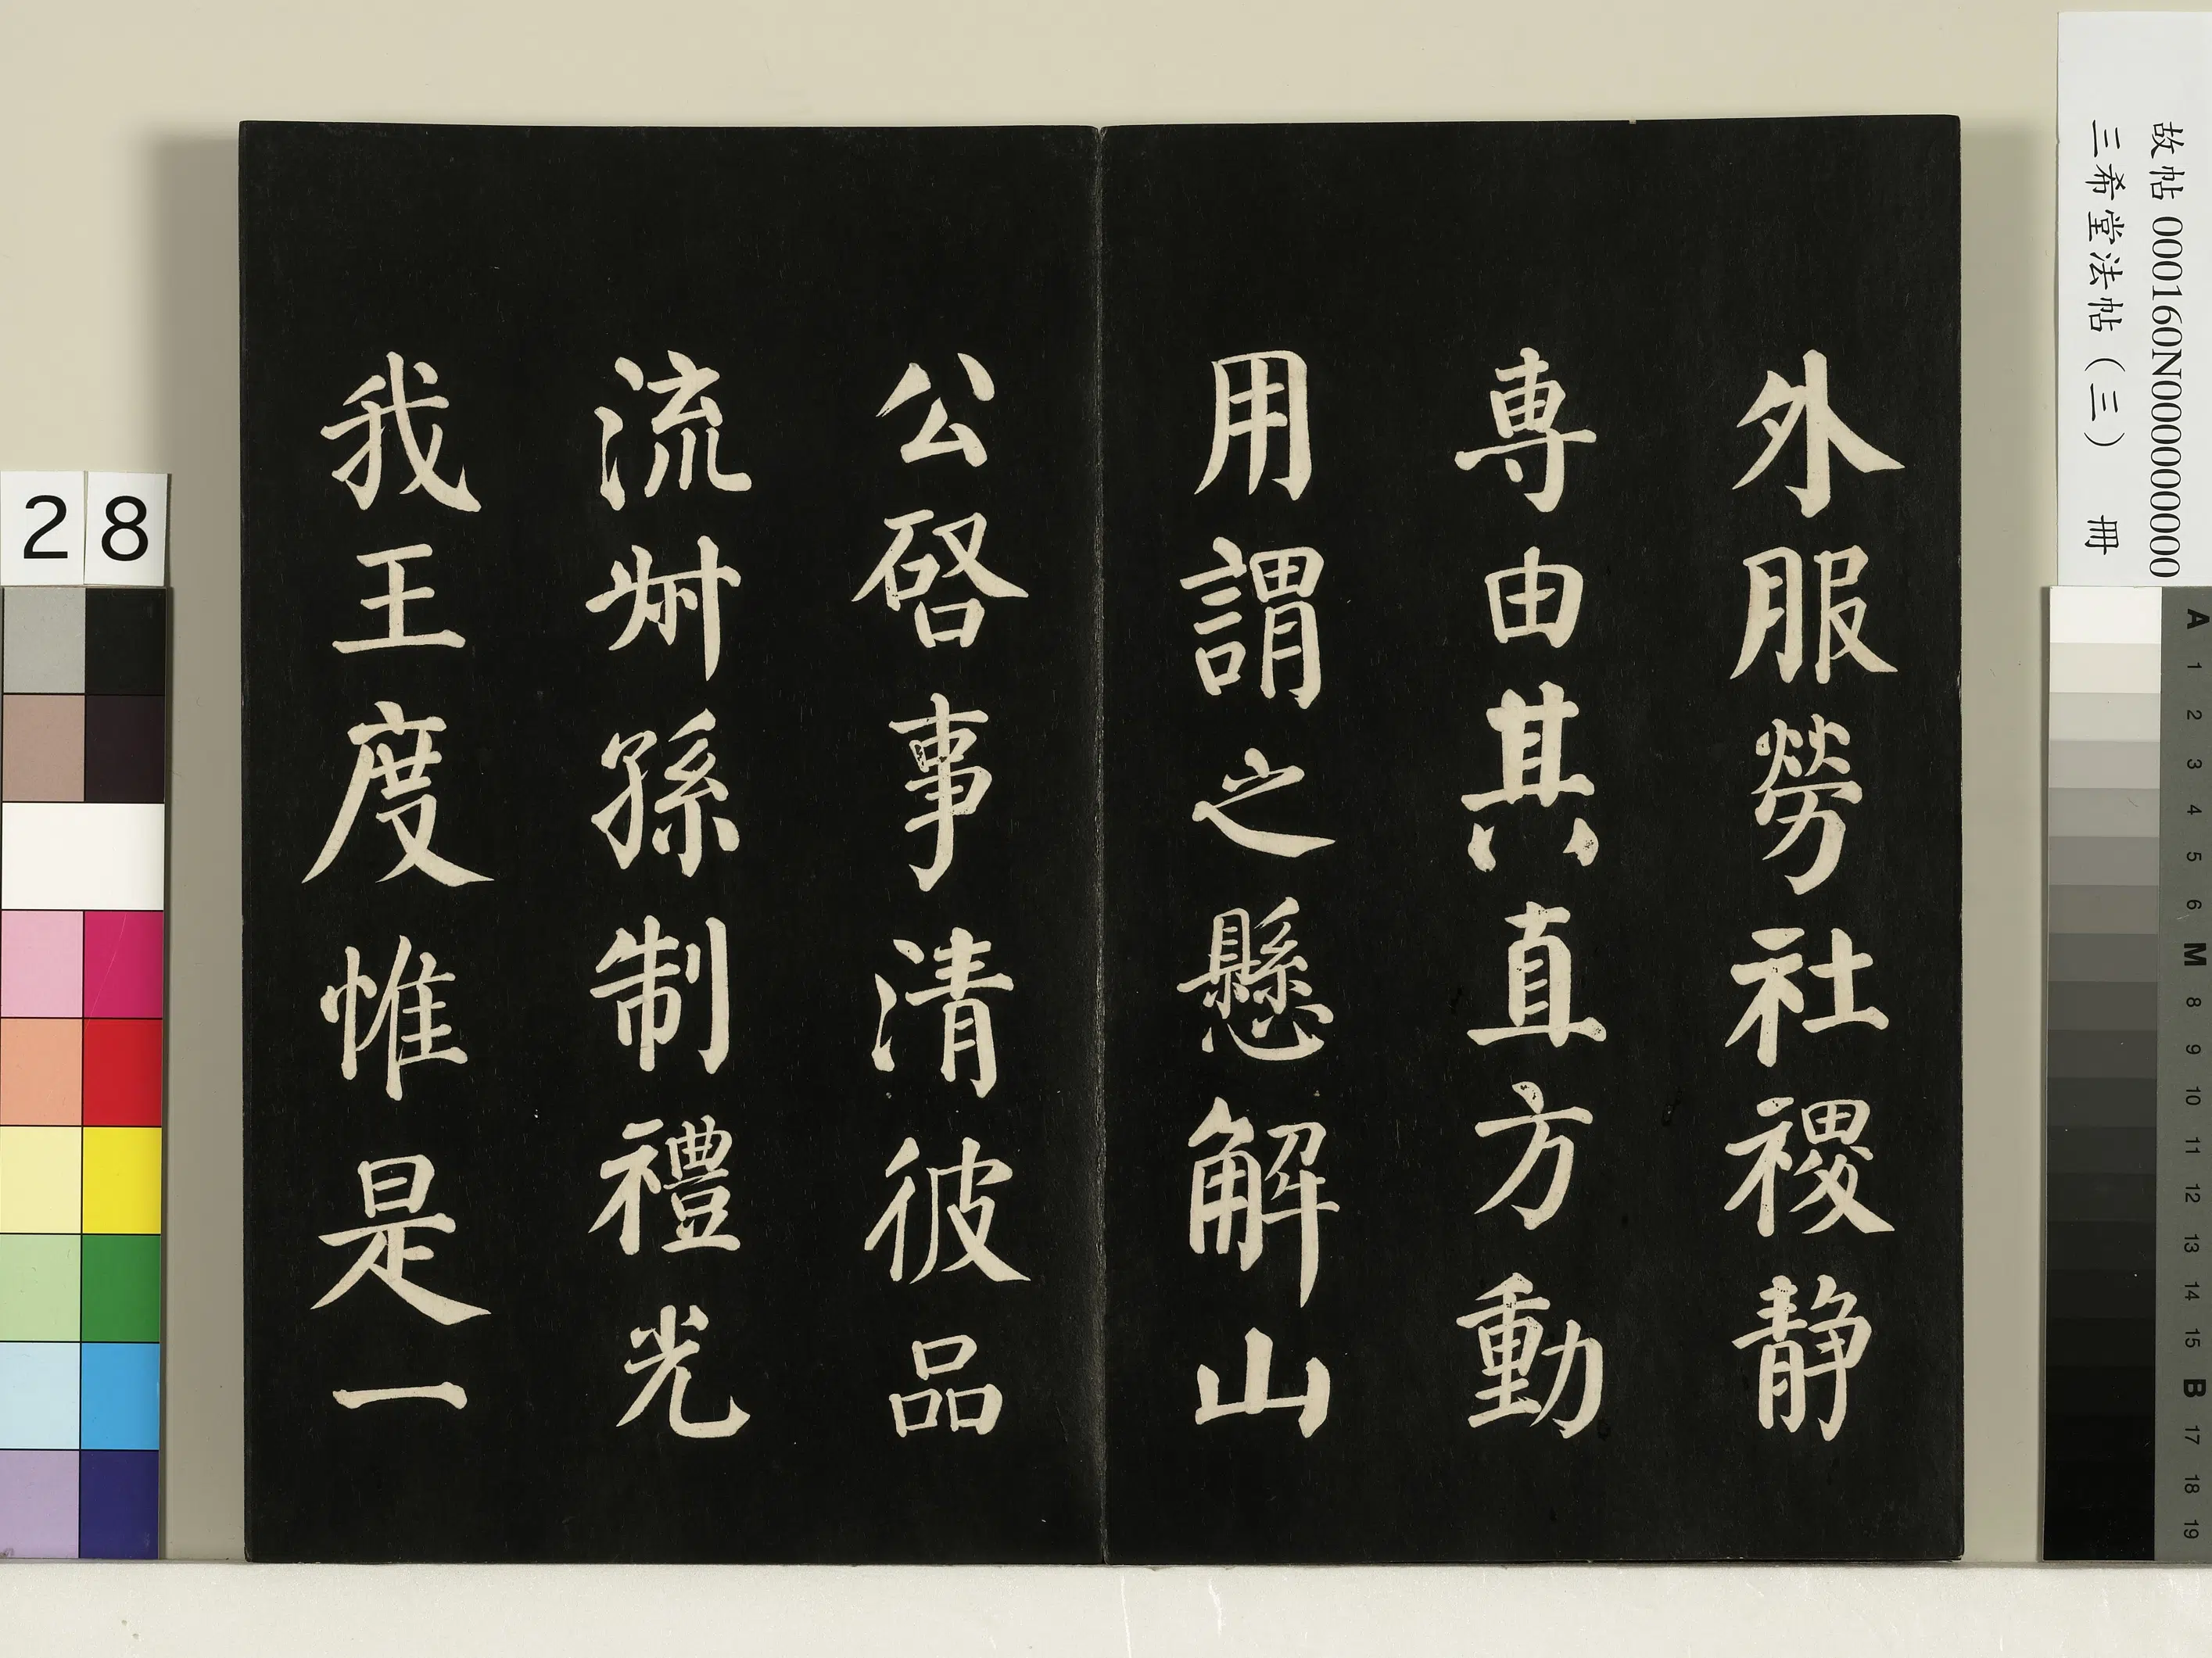 外服勞社稷静
専由其直方動
用謂之懸解山
公啓事清彼品
流叔孫制禮光
我王度惟是一
故帖 000160N000000000
三希堂法帖（三） 冊
28
A 1 2 3 4 5 6 M 8 9 10 11 12 13 14 15 B 17 18 19